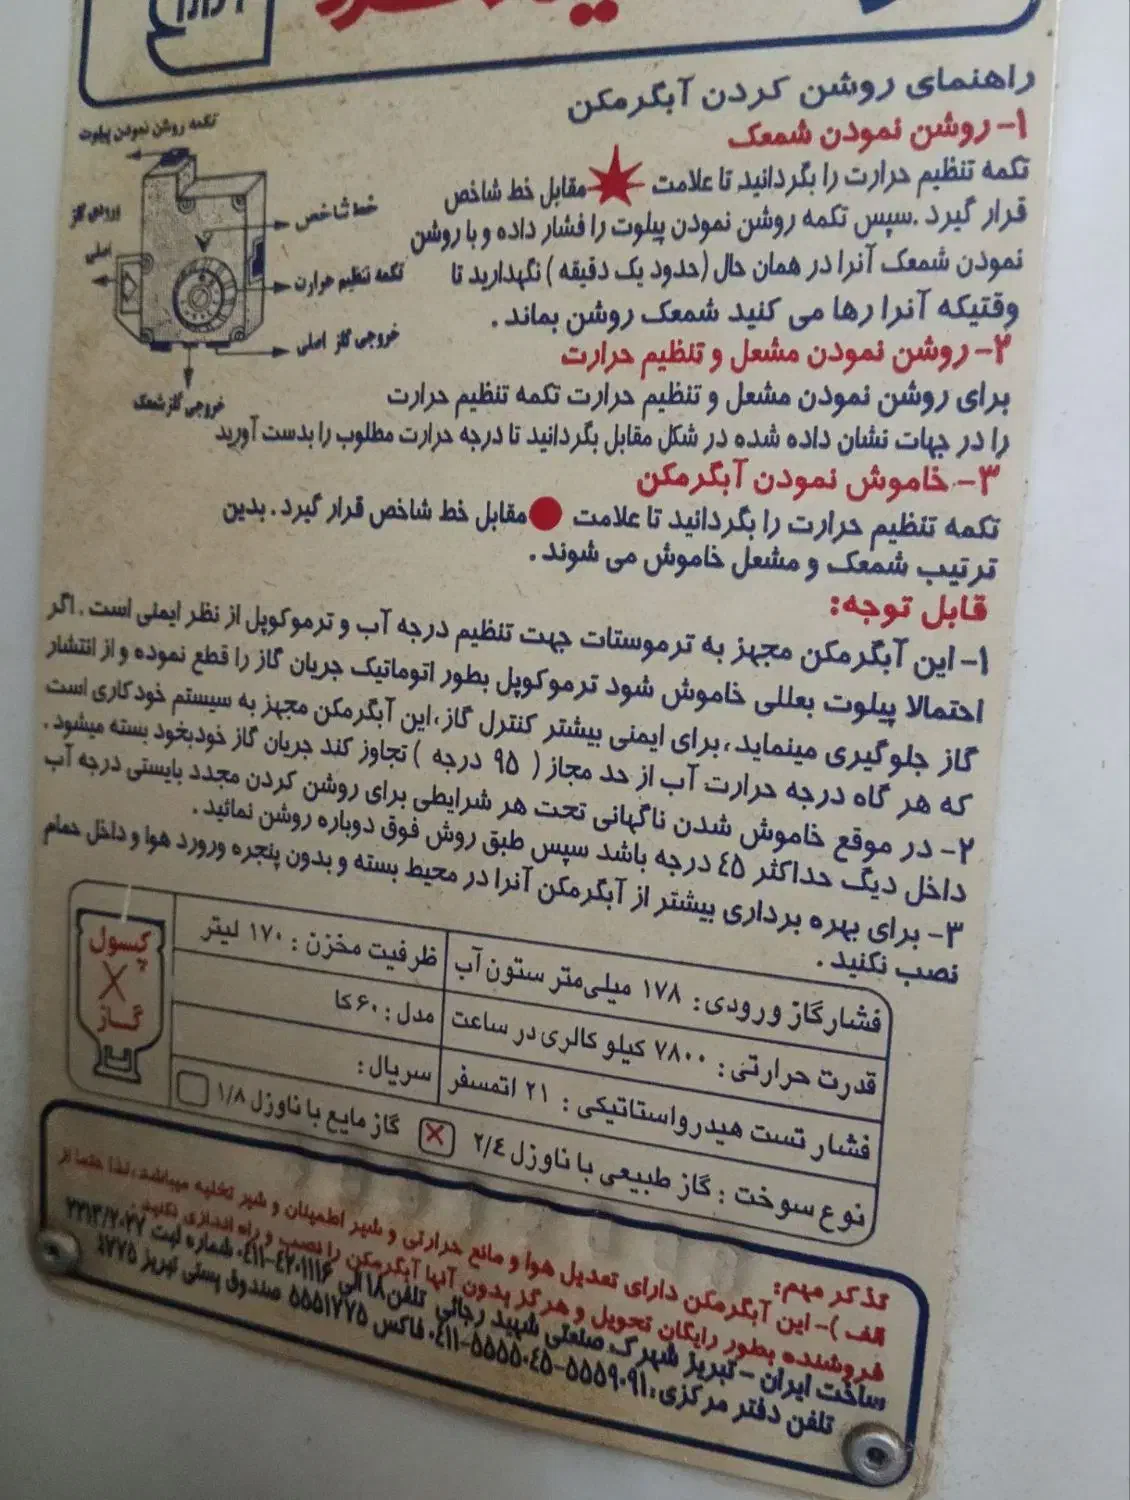 راهنمای روشن کردن آبگرمکن
۱- روشن نمودن شمعک
تکمه تنظیم حرارت را بگردانید تا علامت مقابل خط شاخص
قرار گیرد .سپس تکمه روشن نمودن پیلوت را فشار داده و با روشن
نمودن شمعک آنرا در همان حال (حدود یک دقیقه ) نگهدارید تا
وقتیکه آنرا رها می کنید شمعک روشن بماند .
تکمه روشن نمودن پیلوت
خط شاخص
ورودی گاز
اصلی
تکمه تنظیم حرارت
خروجی گاز اصلی
خروجی گاز شمعک
۲- روشن نمودن مشعل و تنظیم حرارت
برای روشن نمودن مشعل و تنظیم حرارت تکمه تنظیم حرارت
را در جهات نشان داده شده در شکل مقابل بگردانید تا درجه حرارت مطلوب را بدست آورید
۳- خاموش نمودن آبگرمکن
تکمه تنظیم حرارت را بگردانید تا علامت مقابل خط شاخص قرار گیرد . بدین
ترتیب شمعک و مشعل خاموش می شوند .
قابل توجه:
۱- این آبگرمکن مجهز به ترموستات جهت تنظیم درجه آب و ترموکوپل از نظر ایمنی است . اگر
احتمالا پیلوت بعللی خاموش شود ترموکوپل بطور اتوماتیک جریان گاز را قطع نموده و از انتشار
گاز جلوگیری مینماید ، برای ایمنی بیشتر کنترل گاز،این آبگرمکن مجهز به سیستم خودکاری است
که هر گاه درجه حرارت آب از حد مجاز ( ۹۵ درجه ) تجاوز کند جریان گاز خودبخود بسته میشود .
۲- در موقع خاموش شدن ناگهانی تحت هر شرایطی برای روشن کردن مجدد بایستی درجه آب
داخل دیگ حداکثر ٤٥ درجه باشد سپس طبق روش فوق دوباره روشن نمائید .
۳- برای بهره برداری بیشتر از آبگرمکن آنرا در محیط بسته و بدون پنجره ورورد هوا و داخل حمام
نصب نکنید .
فشار گاز ورودی : ۱۷۸ میلی‌متر ستون آب
ظرفیت مخزن : ۱۷۰ لیتر
قدرت حرارتی : ۷۸۰۰ کیلو کالری در ساعت
مدل : ۶۰ کا
فشار تست هیدرواستاتیکی : ۲۱ اتمسفر
سریال :
نوع سوخت : گاز طبیعی با ناوزل ۲/٤ گاز مایع با ناوزل ۱/۸
کپسول
گاز
تذکر مهم:
الف )- این آبگرمکن دارای تعدیل هوا و مانع حرارتی و شیر اطمینان و شیر تخلیه میباشد ،لذا حتما از
فروشنده بطور رایگان تحویل و هرگز بدون آنها آبگرمکن را نصب و راه اندازی نکنید .
ساخت ایران - تبریز شهرک صنعتی شهید رجائی تلفن ۱۸ الی ٤۲۰۱۱۱۶-۰٤۱۱ شماره ثبت
تلفن دفتر مرکزی : ۵۵۵۹۰۹۱-۵۵۵۵۰٤۵-۰٤۱۱ فاکس ۵۵۵۱۷۷۵ صندوق پستی تبریز